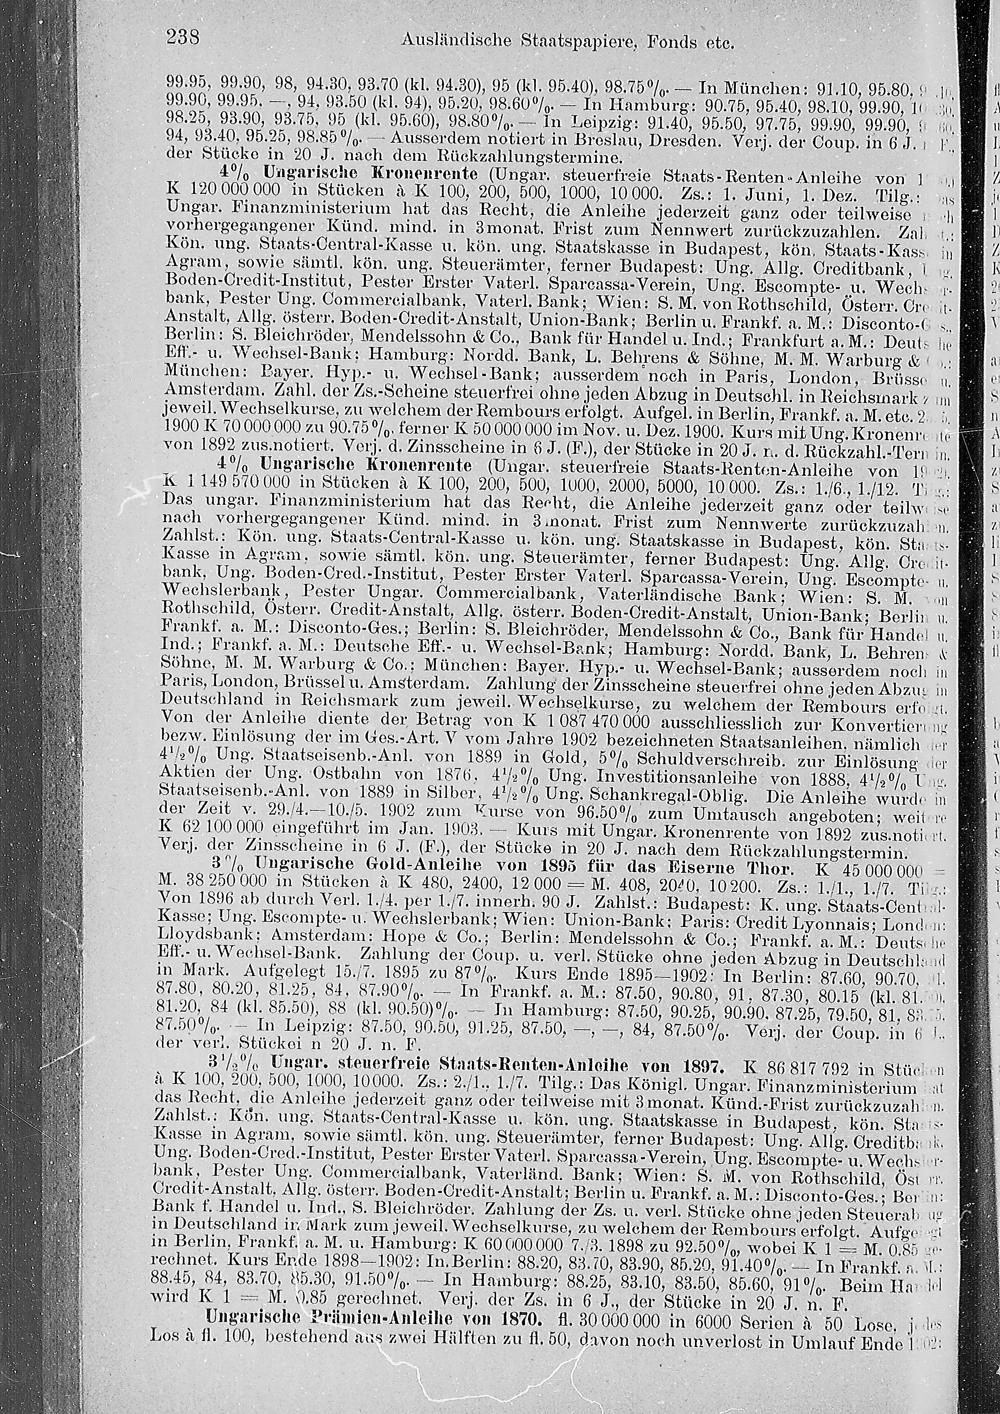 238 Ausländische Staatspapiere, Fonds etc.
99.95, 99.90, 98, 94.30, 93.70 (kl. 94.30), 95 (kl. 95.40), 98.75%. — In München: 91.10, 95.80,
99.90, 99.95, —, 94, 93.50 (kl. 94), 95.20, 98.60%. — In Hamburg: 90.75, 95.40, 98.10, 99.90,
98.25, 93.90, 93.75, 95 (kl. 95.60), 98.80%. — In Leipzig: 91.40, 95.50, 97.75, 99.90, 99.90,
94, 93.40, 95.25, 98.85%. — Ausserdem notiert in Breslau, Dresden. Verj. der Coup. in 6 J.
der Stücke in 20 J. nach dem Rückzahlungstermine.
4% Ungarische Kronenrente (Ungar. steuerfreie Staats-Renten-Anleihe von
K 120 000 000 in Stücken à K 100, 200, 500, 1000, 10 000. Zs.: 1. Juni, 1. Dez. Tilg.: Das
Ungar. Finanzministerium hat das Recht, die Anleihe jederzeit ganz oder teilweise
vorhergegangener Künd. mind. in 3monat. Frist zum Nennwert zurückzuzahlen.
Kön. ung. Staats-Central-Kasse u. kön. ung. Staatskasse in Budapest, kön. Staats-Kasse in
Agram, sowie sämtl. kön. ung. Steuerämter, ferner Budapest: Ung. Allg. Creditbank,
Boden-Credit-Institut, Pester Erster Vaterl. Sparcassa-Verein, Ung. Escompte- u. Wechsler-
bank, Pester Ung. Commercialbank, Vaterl. Bank; Wien: S. M. von Rothschild, Österr. Credit-
Anstalt, Allg. österr. Boden-Credit-Anstalt, Union-Bank; Berlin u. Frankf. a. M.: Disconto-
Berlin: S. Bleichröder, Mendelssohn & Co., Bank für Handel u. Ind.; Frankfurt a. M.: Deutsche
Eff.- u. Wechsel-Bank; Hamburg: Nordd. Bank, L. Behrens & Söhne, M. M. Warburg &
München: Bayer. Hyp.- u. Wechsel-Bank; ausserdem noch in Paris, London, Brüssel u.
Amsterdam. Zahl. der Zs.-Scheine steuerfrei ohne jeden Abzug in Deutschl. in Reichsmark zum
jeweil. Wechselkurse, zu welchem der Rembours erfolgt. Aufgel. in Berlin, Frankf. a. M. etc.
1900 K 70 000 000 zu 90.75%, ferner K 50 000 000 im Nov. u. Dez. 1900. Kurs mit Ung. Kronenrente
von 1892 zus.notiert. Verj. d. Zinsscheine in 6 J. (F.), der Stücke in 20 J. n. d. Rückzahl.-Termin.
4% Ungarische Kronenrente (Ungar. steuerfreie Staats-Renten-Anleihe von
K 1 149 570 000 in Stücken à K 100, 200, 500, 1000, 2000, 5000, 10 000. Zs.: 1./6., 1./12. Tilg.:
Das ungar. Finanzministerium hat das Recht, die Anleihe jederzeit ganz oder teilweise
nach vorhergegangener Künd. mind. in 3monat. Frist zum Nennwerte zurückzuzahlen.
Zahlst.: Kön. ung. Staats-Central-Kasse u. kön. ung. Staatskasse in Budapest, kön. Staats-
Kasse in Agram, sowie sämtl. kön. ung. Steuerämter, ferner Budapest: Ung. Allg. Credit-
bank, Ung. Boden-Cred.-Institut, Pester Erster Vaterl. Sparcassa-Verein, Ung. Escompte- u.
Wechslerbank, Pester Ungar. Commercialbank, Vaterländische Bank; Wien: S. M. von
Rothschild, Österr. Credit-Anstalt, Allg. österr. Boden-Credit-Anstalt, Union-Bank; Berlin u.
Frankf. a. M.: Disconto-Ges.; Berlin: S. Bleichröder, Mendelssohn & Co., Bank für Handel u.
Ind.; Frankf. a. M.: Deutsche Eff.- u. Wechsel-Bank; Hamburg: Nordd. Bank, L. Behrens &
Söhne, M. M. Warburg & Co.; München: Bayer. Hyp.- u. Wechsel-Bank; ausserdem noch in
Paris, London, Brüssel u. Amsterdam. Zahlung der Zinsscheine steuerfrei ohne jeden Abzug in
Deutschland in Reichsmark zum jeweil. Wechselkurse, zu welchem der Rembours erfolgt.
Von der Anleihe diente der Betrag von K 1 087 470 000 ausschliesslich zur Konvertierung
bezw. Einlösung der im Ges.-Art. V vom Jahre 1902 bezeichneten Staatsanleihen, nämlich der
4½% Ung. Staatseisenb.-Anl. von 1889 in Gold, 5% Schuldverschreib. zur Einlösung der
Aktien der Ung. Ostbahn von 1876, 4½% Ung. Investitionsanleihe von 1888, 4½% Ung.
Staatseisenb.-Anl. von 1889 in Silber, 4½% Ung. Schankregal-Oblig. Die Anleihe wurde in
der Zeit v. 29./4.—10./5. 1902 zum Kurse von 96.50% zum Umtausch angeboten; weitere
K 62 100 000 eingeführt im Jan. 1903. — Kurs mit Ungar. Kronenrente von 1892 zus.notiert.
Verj. der Zinsscheine in 6 J. (F.), der Stücke in 20 J. nach dem Rückzahlungstermin.
3% Ungarische Gold-Anleihe von 1895 für das Eiserne Thor. K 45 000 000 =
M. 38 250 000 in Stücken à K 480, 2400, 12 000 = M. 408, 2040, 10 200. Zs.: 1./1., 1./7. Tilg.:
Von 1896 ab durch Verl. 1./4. per 1./7. innerh. 90 J. Zahlst.: Budapest: K. ung. Staats-Central-
Kasse; Ung. Escompte- u. Wechslerbank; Wien: Union-Bank; Paris: Credit Lyonnais; London:
Lloydsbank; Amsterdam: Hope & Co.; Berlin: Mendelssohn & Co.; Frankf. a. M.: Deutsche
Eff.- u. Wechsel-Bank. Zahlung der Coup. u. verl. Stücke ohne jeden Abzug in Deutschland
in Mark. Aufgelegt 15./7. 1895 zu 87%. Kurs Ende 1895—1902: In Berlin: 87.60, 90.70,
87.80, 80.20, 81.25, 84, 87.90%. — In Frankf. a. M.: 87.50, 90.80, 91, 87.30, 80.15 (kl.
81.20, 84 (kl. 85.50), 88 (kl. 90.50)%. — In Hamburg: 87.50, 90.25, 90.90, 87.25, 79.50, 81,
87.50%. — In Leipzig: 87.50, 90.50, 91.25, 87.50, —, —, 84, 87.50%. Verj. der Coup. in 6 J.,
der verl. Stückei n 20 J. n. F.
3½% Ungar. steuerfreie Staats-Renten-Anleihe von 1897. K 86 817 792 in Stücken
à K 100, 200, 500, 1000, 10000. Zs.: 2./1., 1./7. Tilg.: Das Königl. Ungar. Finanzministerium hat
das Recht, die Anleihe jederzeit ganz oder teilweise mit 3monat. Künd.-Frist zurückzuzahlen.
Zahlst.: Kön. ung. Staats-Central-Kasse u. kön. ung. Staatskasse in Budapest, kön. Staats-
Kasse in Agram, sowie sämtl. kön. ung. Steuerämter, ferner Budapest: Ung. Allg. Creditbank,
Ung. Boden-Cred.-Institut, Pester Erster Vaterl. Sparcassa-Verein, Ung. Escompte- u. Wechsler-
bank, Pester Ung. Commercialbank, Vaterländ. Bank; Wien: S. M. von Rothschild, Österr.
Credit-Anstalt, Allg. österr. Boden-Credit-Anstalt; Berlin u. Frankf. a. M.: Disconto-Ges.; Berlin:
Bank f. Handel u. Ind., S. Bleichröder. Zahlung der Zs. u. verl. Stücke ohne jeden Steuerabzug
in Deutschland in Mark zum jeweil. Wechselkurse, zu welchem der Rembours erfolgt. Aufgelegt
in Berlin, Frankf. a. M. u. Hamburg: K 60 000 000 7./3. 1898 zu 92.50%, wobei K 1 = M. 0.85 ge-
rechnet. Kurs Ende 1898—1902: In Berlin: 88.20, 83.70, 83.90, 85.20, 91.40%. — In Frankf. a. M.:
88.45, 84, 83.70, 85.30, 91.50%. — In Hamburg: 88.25, 83.10, 83.50, 85.60, 91%. Beim Handel
wird K 1 = M. 0.85 gerechnet. Verj. der Zs. in 6 J., der Stücke in 20 J. n. F.
Ungarische Prämien-Anleihe von 1870. fl. 30 000 000 in 6000 Serien à 50 Lose, jedes
Los à fl. 100, bestehend aus zwei Hälften zu fl. 50, davon noch unverlost in Umlauf Ende 1902: